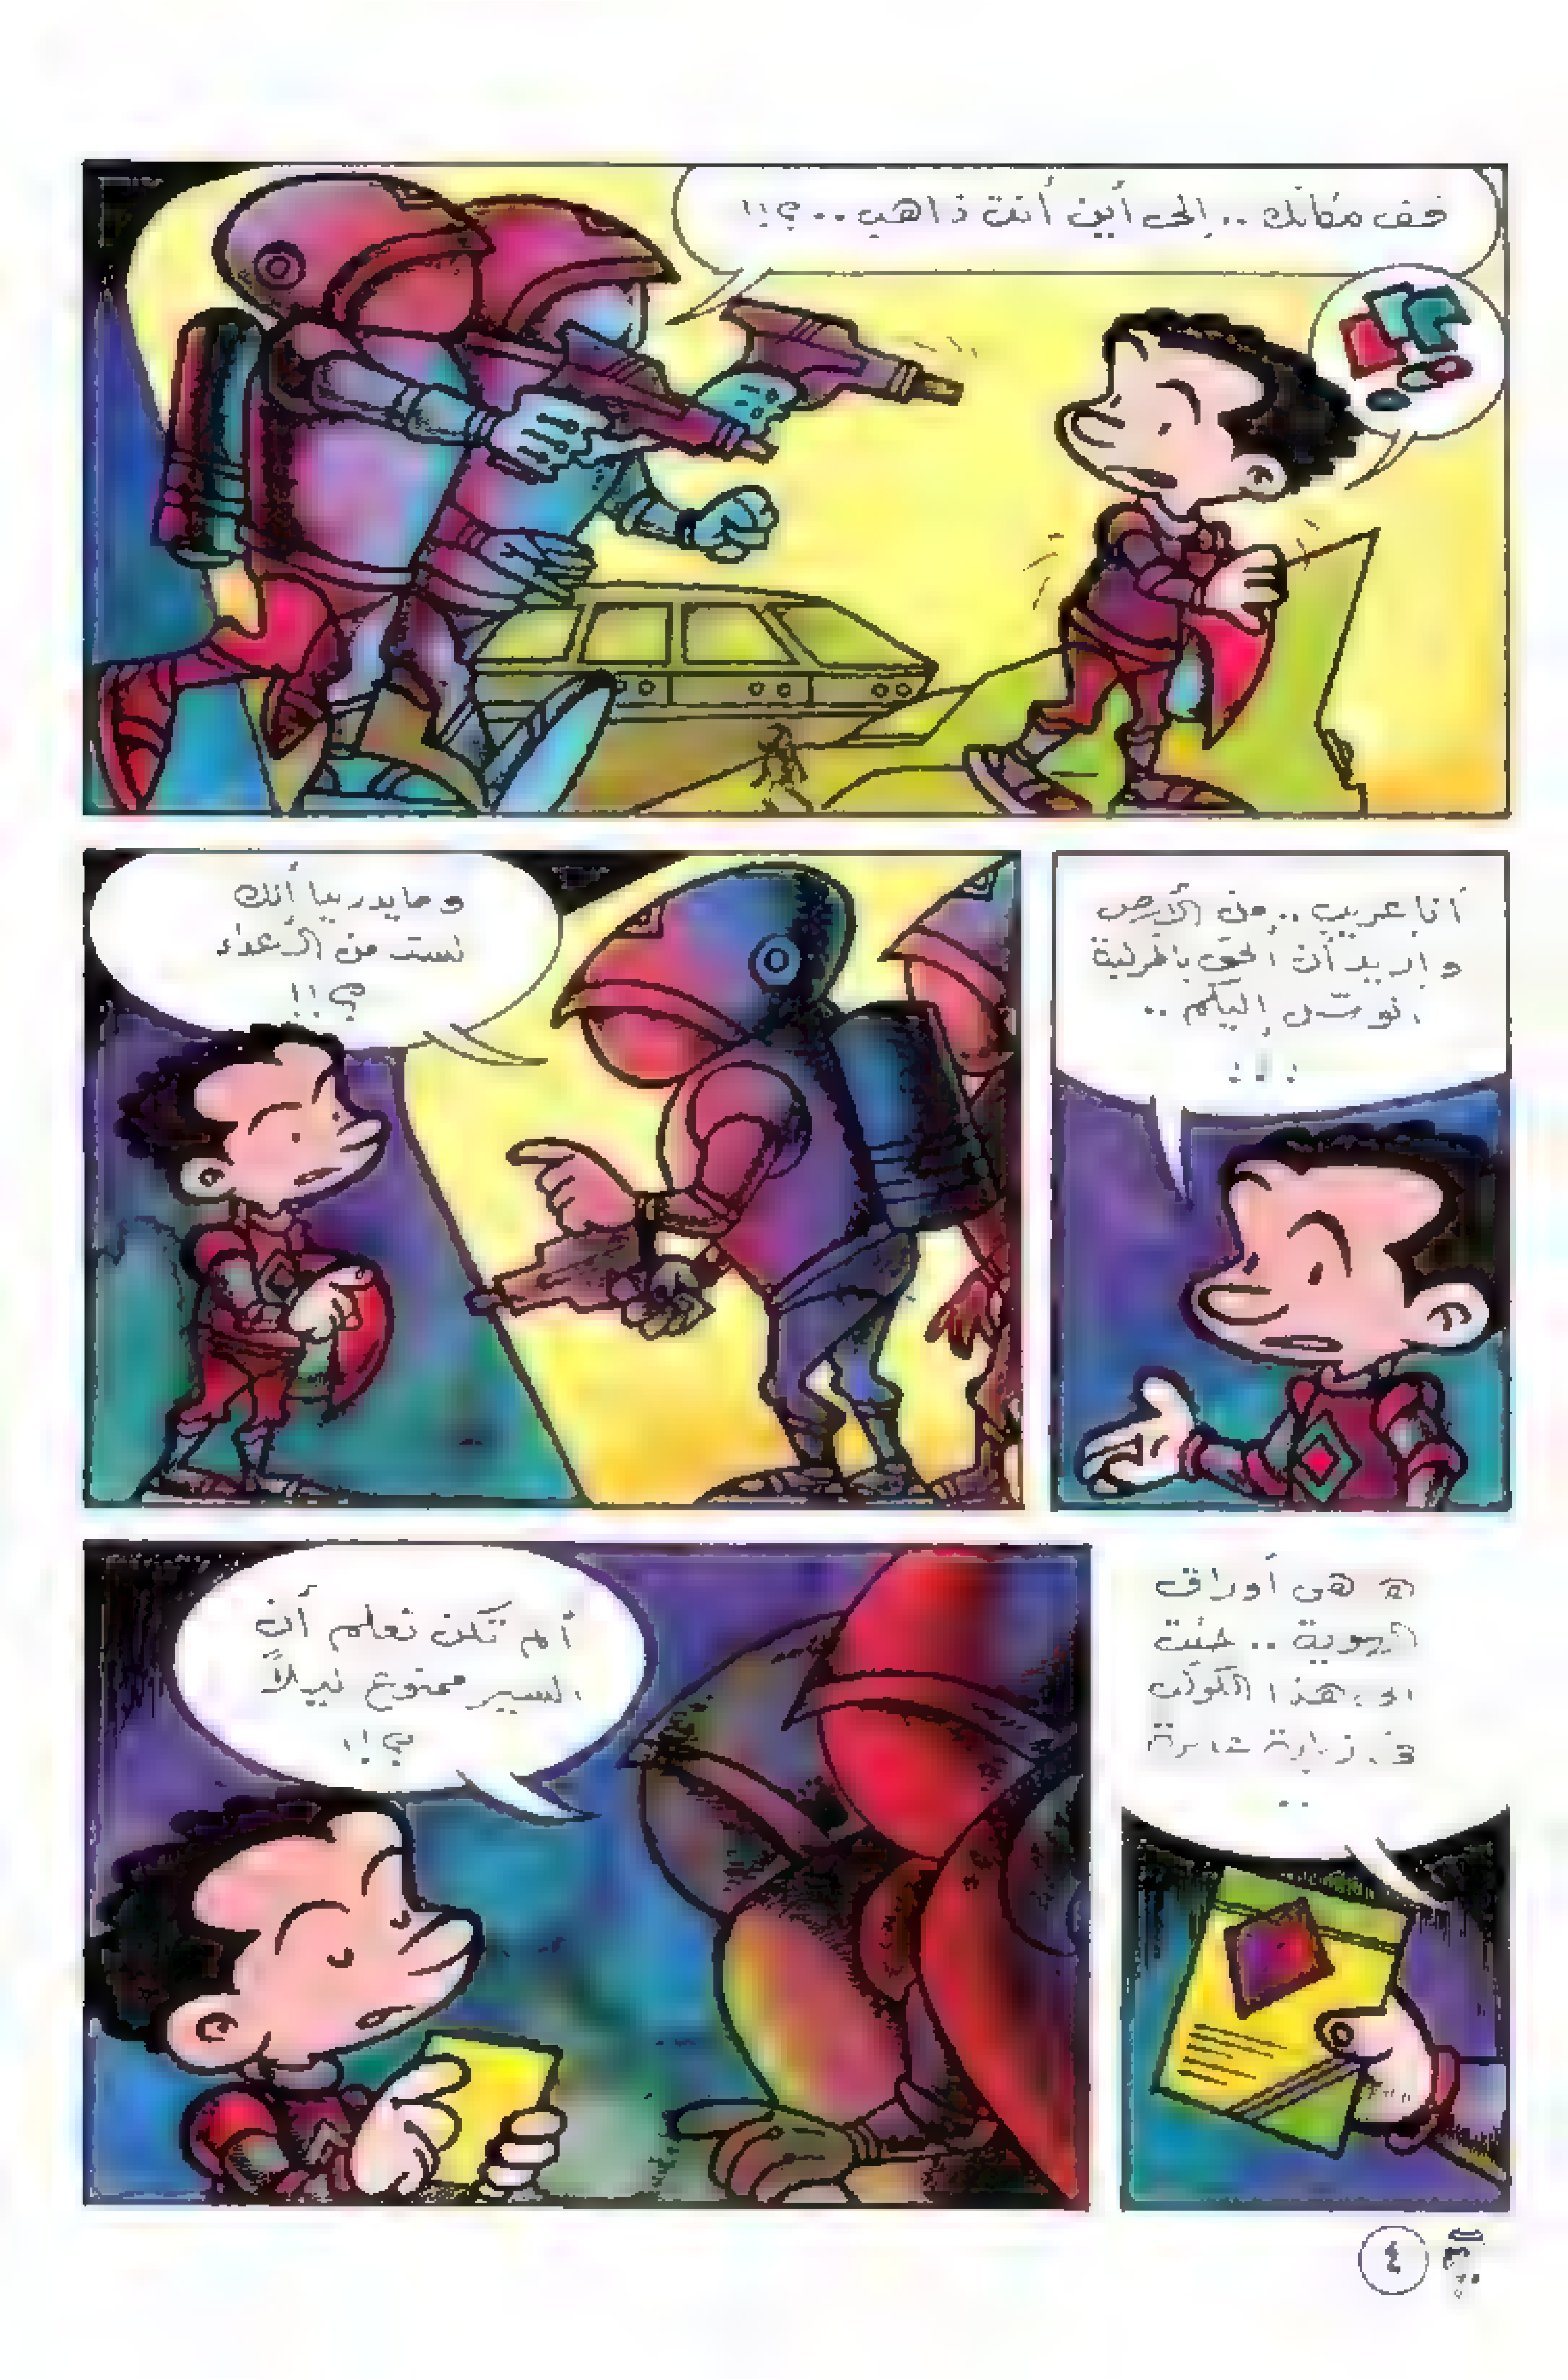 قف مكانك .. إلى أين أنت ذاهب .. ؟!!
أنا غريب .. من الأرض
وأريد أن ألحق بالمركبة
أتوسل إليكم ..
!!!
وما يدرينا أنك
لست من الأعداء
؟!!
هى أوراق
الهوية .. جئت
الى هذا الكوكب
فى زيارة عابرة
..
ألم تكن تعلم أن
السير ممنوع ليلاً
؟!!
٤